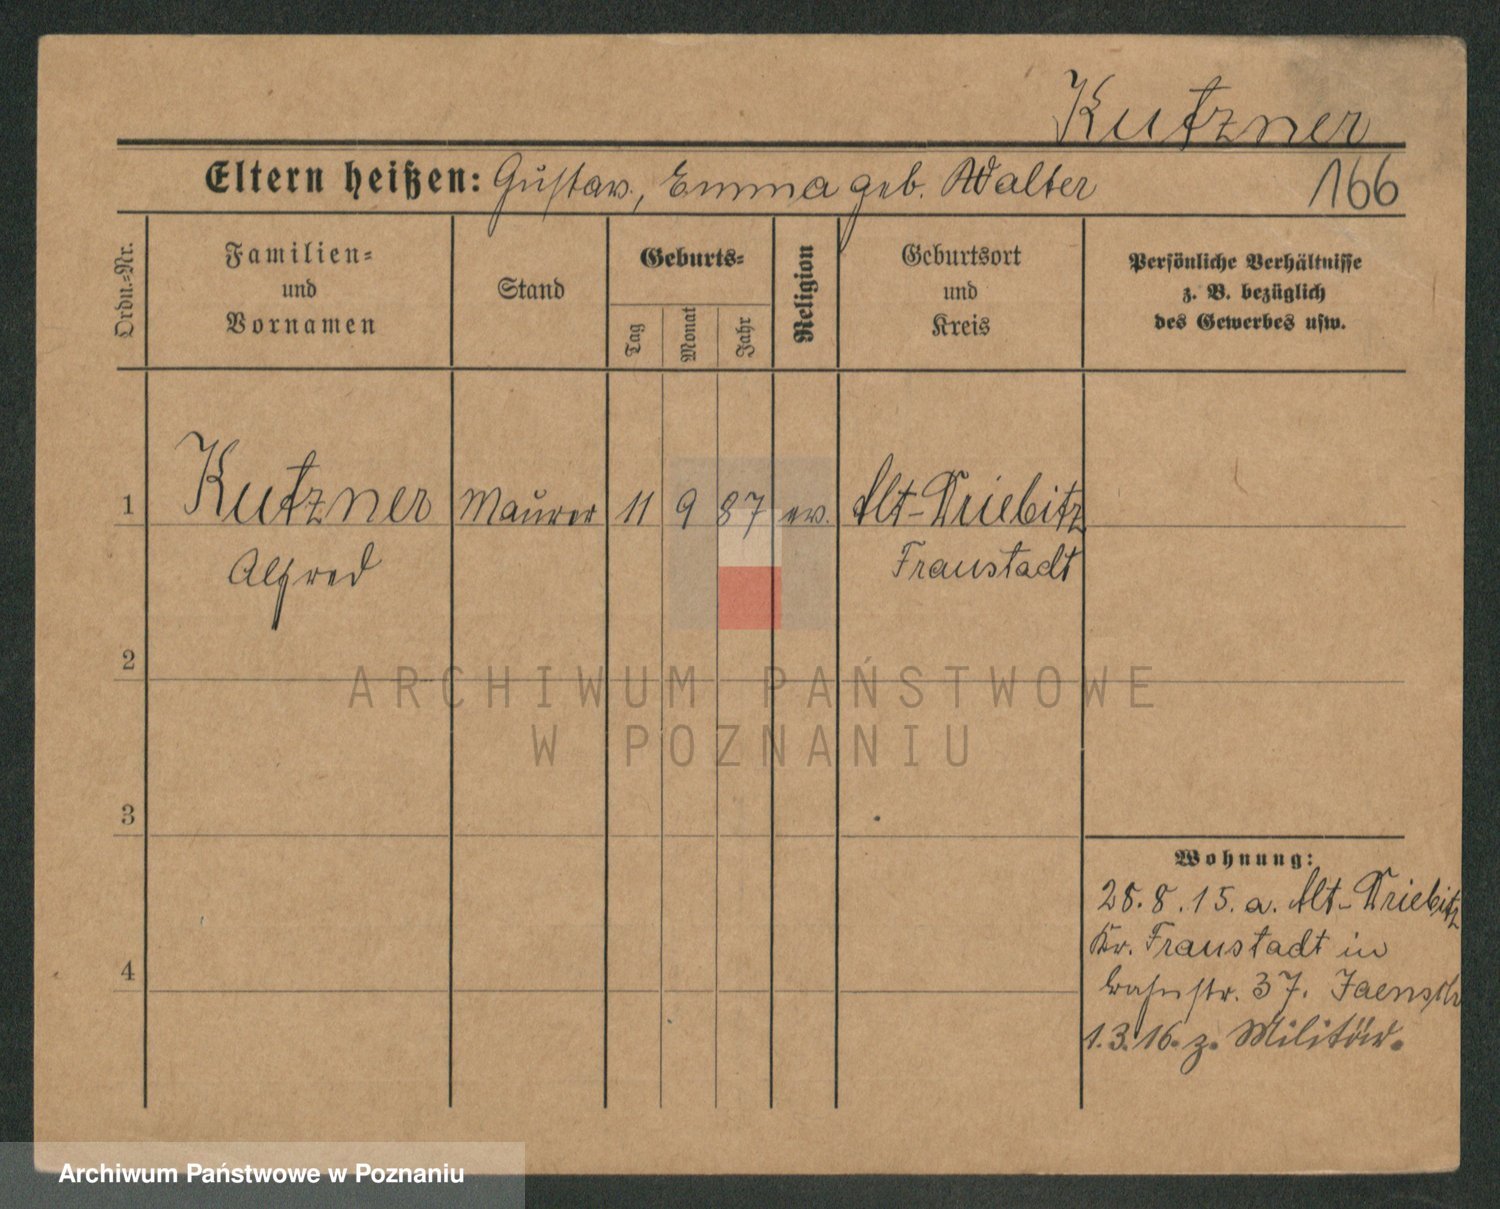 Kutzner
Eltern heißen: Gustav, Emma geb. Walter 166
Ordn.-Nr.
Familien-
und
Vornamen
Stand
Geburts-
Tag
Monat
Jahr
Religion
Geburtsort
und
Kreis
Persönliche Verhältnisse
z. B. bezüglich
des Gewerbes usw.
1 Kutzner Maurer 11 9 87 ev. Alt-Driebitz
Alfred Fraustadt
2
ARCHIWUM PAŃSTWOWE
W POZNANIU
3
Wohnung:
28.8.15. a. Alt-Driebitz
Kr. Fraustadt in
Bahnstr. 37. Jaensch
4
1.3.16. z. Militär.
Archiwum Państwowe w Poznaniu